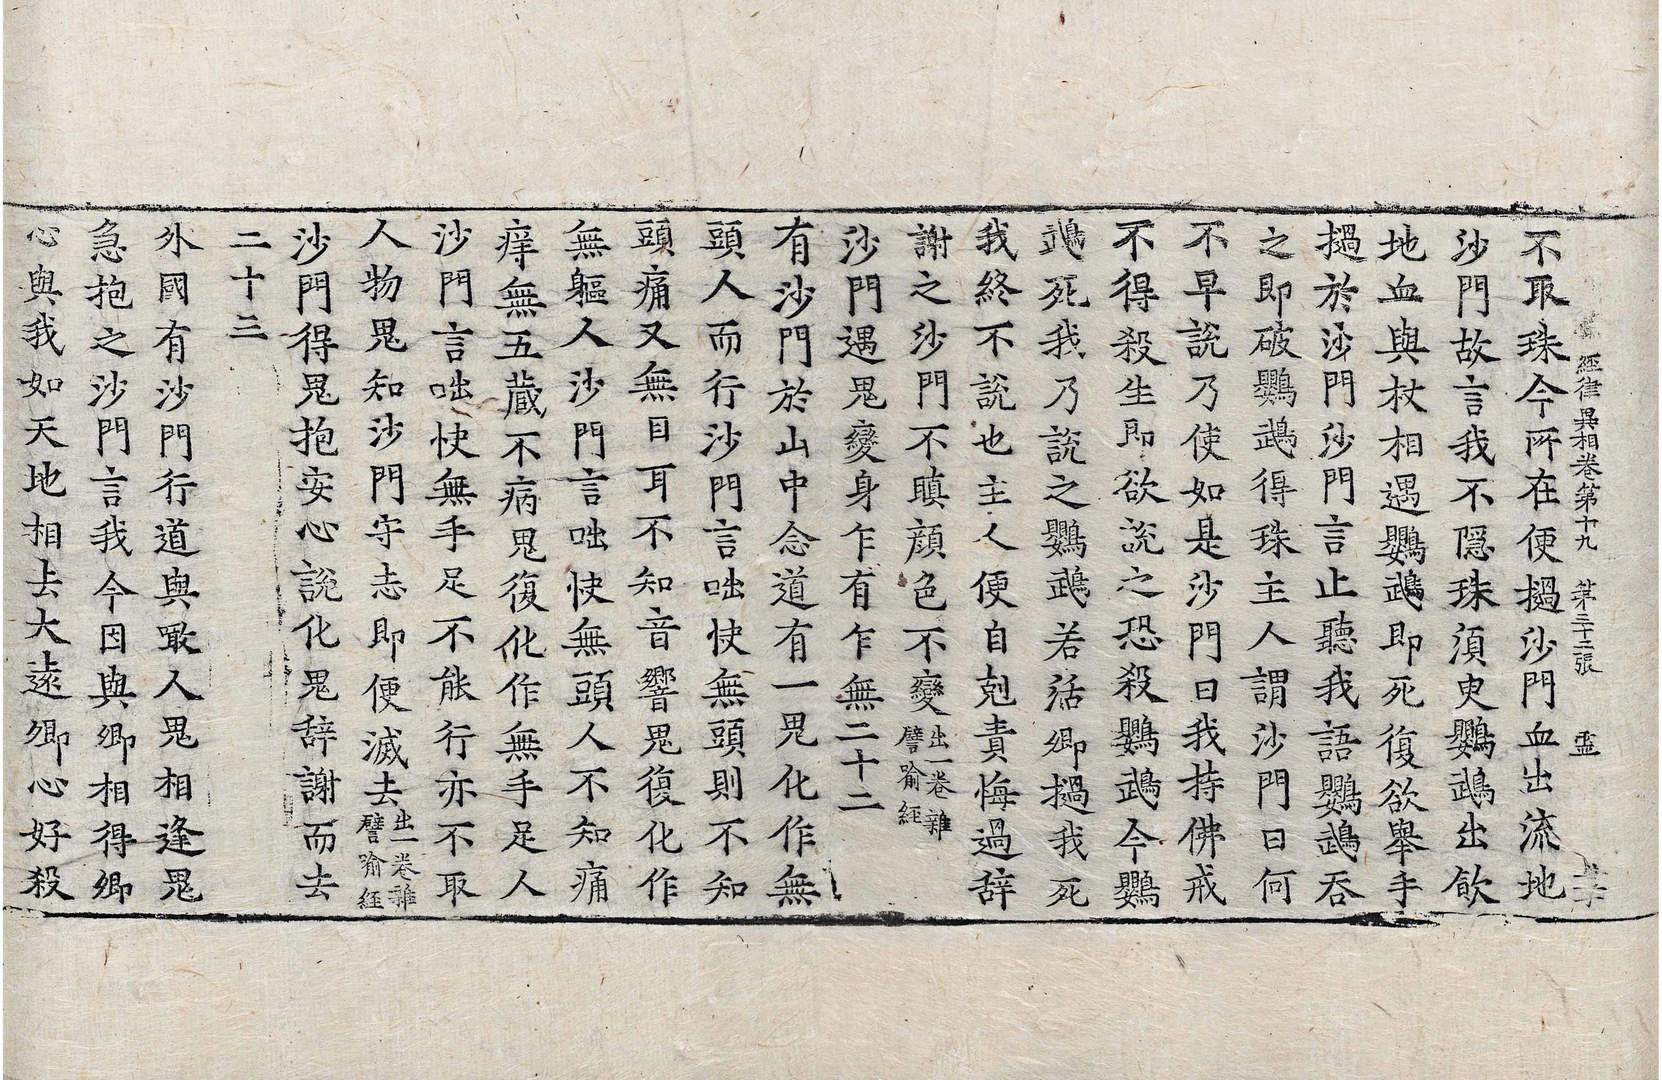 經律異相卷第十九 第三十三張 𩇕
不取珠今所在便撾沙門血出流地
沙門故言我不隱珠湏臾鸚鵡出飲
地血與杖相遇鸚鵡即死復欲舉手
撾於沙門沙門言止聽我語鸚鵡吞
之即破鸚鵡得珠主人謂沙門曰何
不早說乃使如是沙門曰我持佛戒
不得殺生即欲說之恐殺鸚鵡今鸚
鵡死我乃說之鸚鵡若活卿撾我死
我終不說也主人便自剋責悔過辞
謝之沙門不瞋顔色不變出一卷雜譬喻經
沙門遇鬼變身乍有乍無二十二
有沙門於山中念道有一鬼化作無
頭人而行沙門言咄快無頭則不知
頭痛又無目耳不知音響鬼復化作
無軀人沙門言咄快無頭人不知痛
痒無五藏不病鬼復化作無手足人
沙門言咄快無手足不能行亦不取
人物鬼知沙門守志即便滅去出一卷雜譬喻經
沙門得鬼抱安心說化鬼辞謝而去
二十三
外國有沙門行道與噉人鬼相逢鬼
急抱之沙門言我今因與卿相得卿
心與我如天地相去大遠卿心好殺